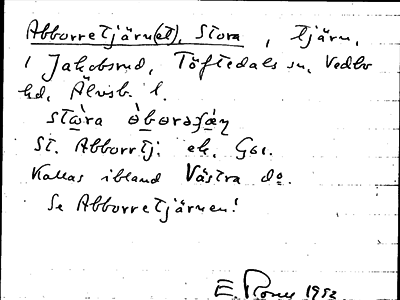 Abborretjärn(et), Stora, tjärn,
i Jakobsrud, Töftedals sn, Vedbo
hd, Älvsb. l.
stὼra àbωrəʂæ̀ņ
St. Abborrtj. ek. Gsr.
Kallas ibland Västra do.
Se Abborretjärnen!
E. 1953